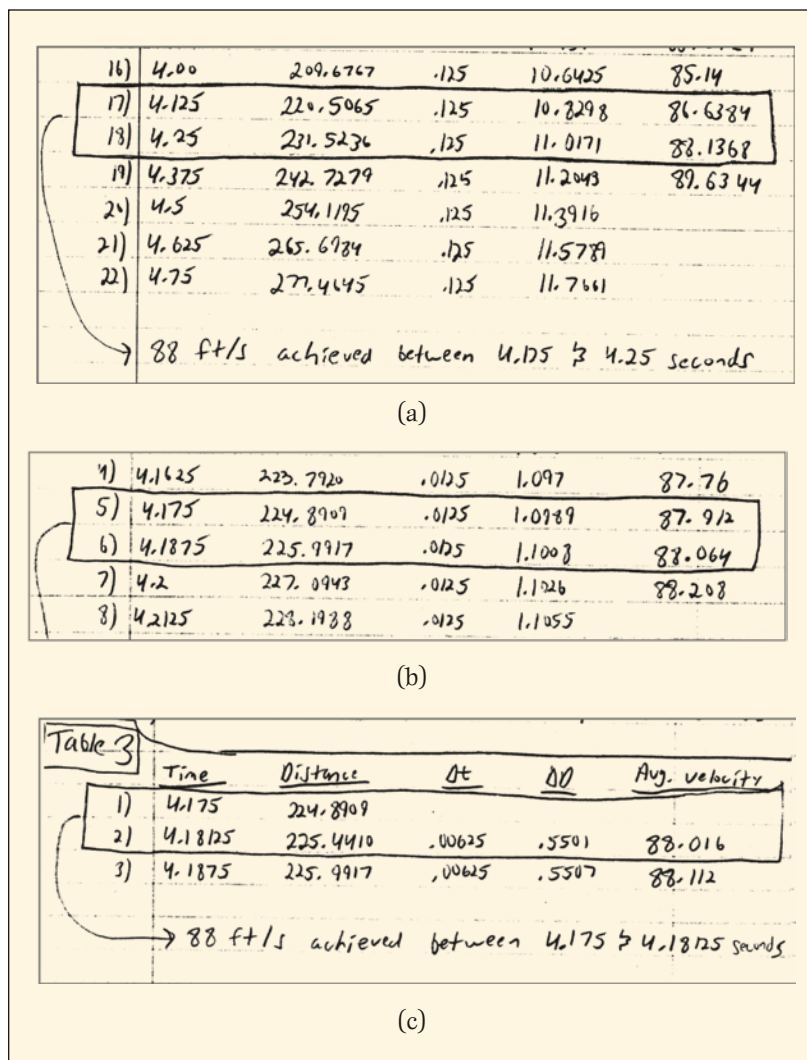 16) 4.00 209.6767 .125 10.6425 85.14
17) 4.125 220.5065 .125 10.8298 86.6384
18) 4.25 231.5236 .125 11.0171 88.1368
19) 4.375 242.7279 .125 11.2043 89.6344
20) 4.5 254.1195 .125 11.3916
21) 4.625 265.6984 .125 11.5789
22) 4.75 277.4645 .125 11.7661
88 ft/s achieved between 4.125 & 4.25 seconds
(a)
4) 4.1625 223.7920 .0125 1.097 87.76
5) 4.175 224.8909 .0125 1.0989 87.912
6) 4.1875 225.9917 .0125 1.1008 88.064
7) 4.2 227.0943 .0125 1.1026 88.208
8) 4.2125 228.1988 .0125 1.1055
(b)
Table 3
Time Distance Δt ΔD Avg. velocity
1) 4.175 224.8909
2) 4.18125 225.4410 .00625 .5501 88.016
3) 4.1875 225.9917 .00625 .5507 88.112
88 ft/s achieved between 4.175 & 4.18125 seconds
(c)